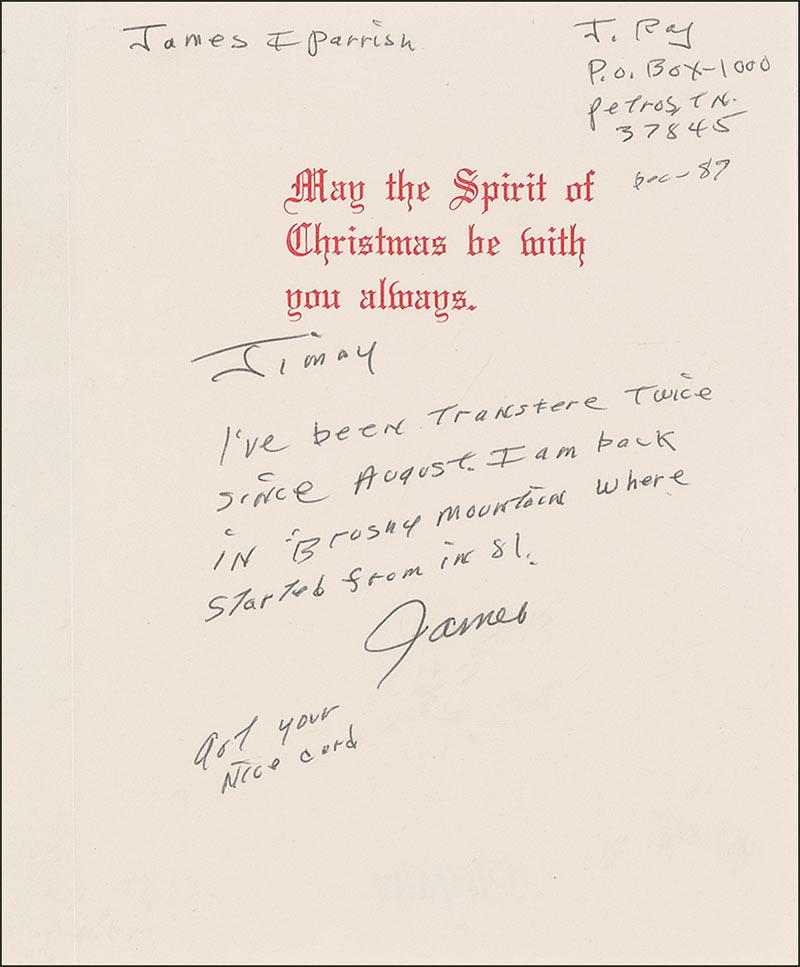 James E Parrish
J. Ray
P.O. Box-1000
Petros, TN.
37845
Dec-87
May the Spirit of
Christmas be with
you always.
Jimmy
I've been Transfere Twice
since August. I am back
in Brushy Mountain where
Started from in 81.
James
Got your
Nice card